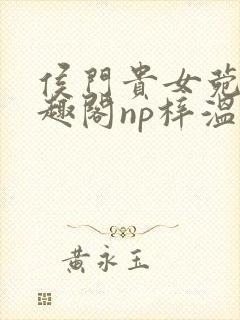 侯門貴女菀
趣閣np梓溫
黃永玉